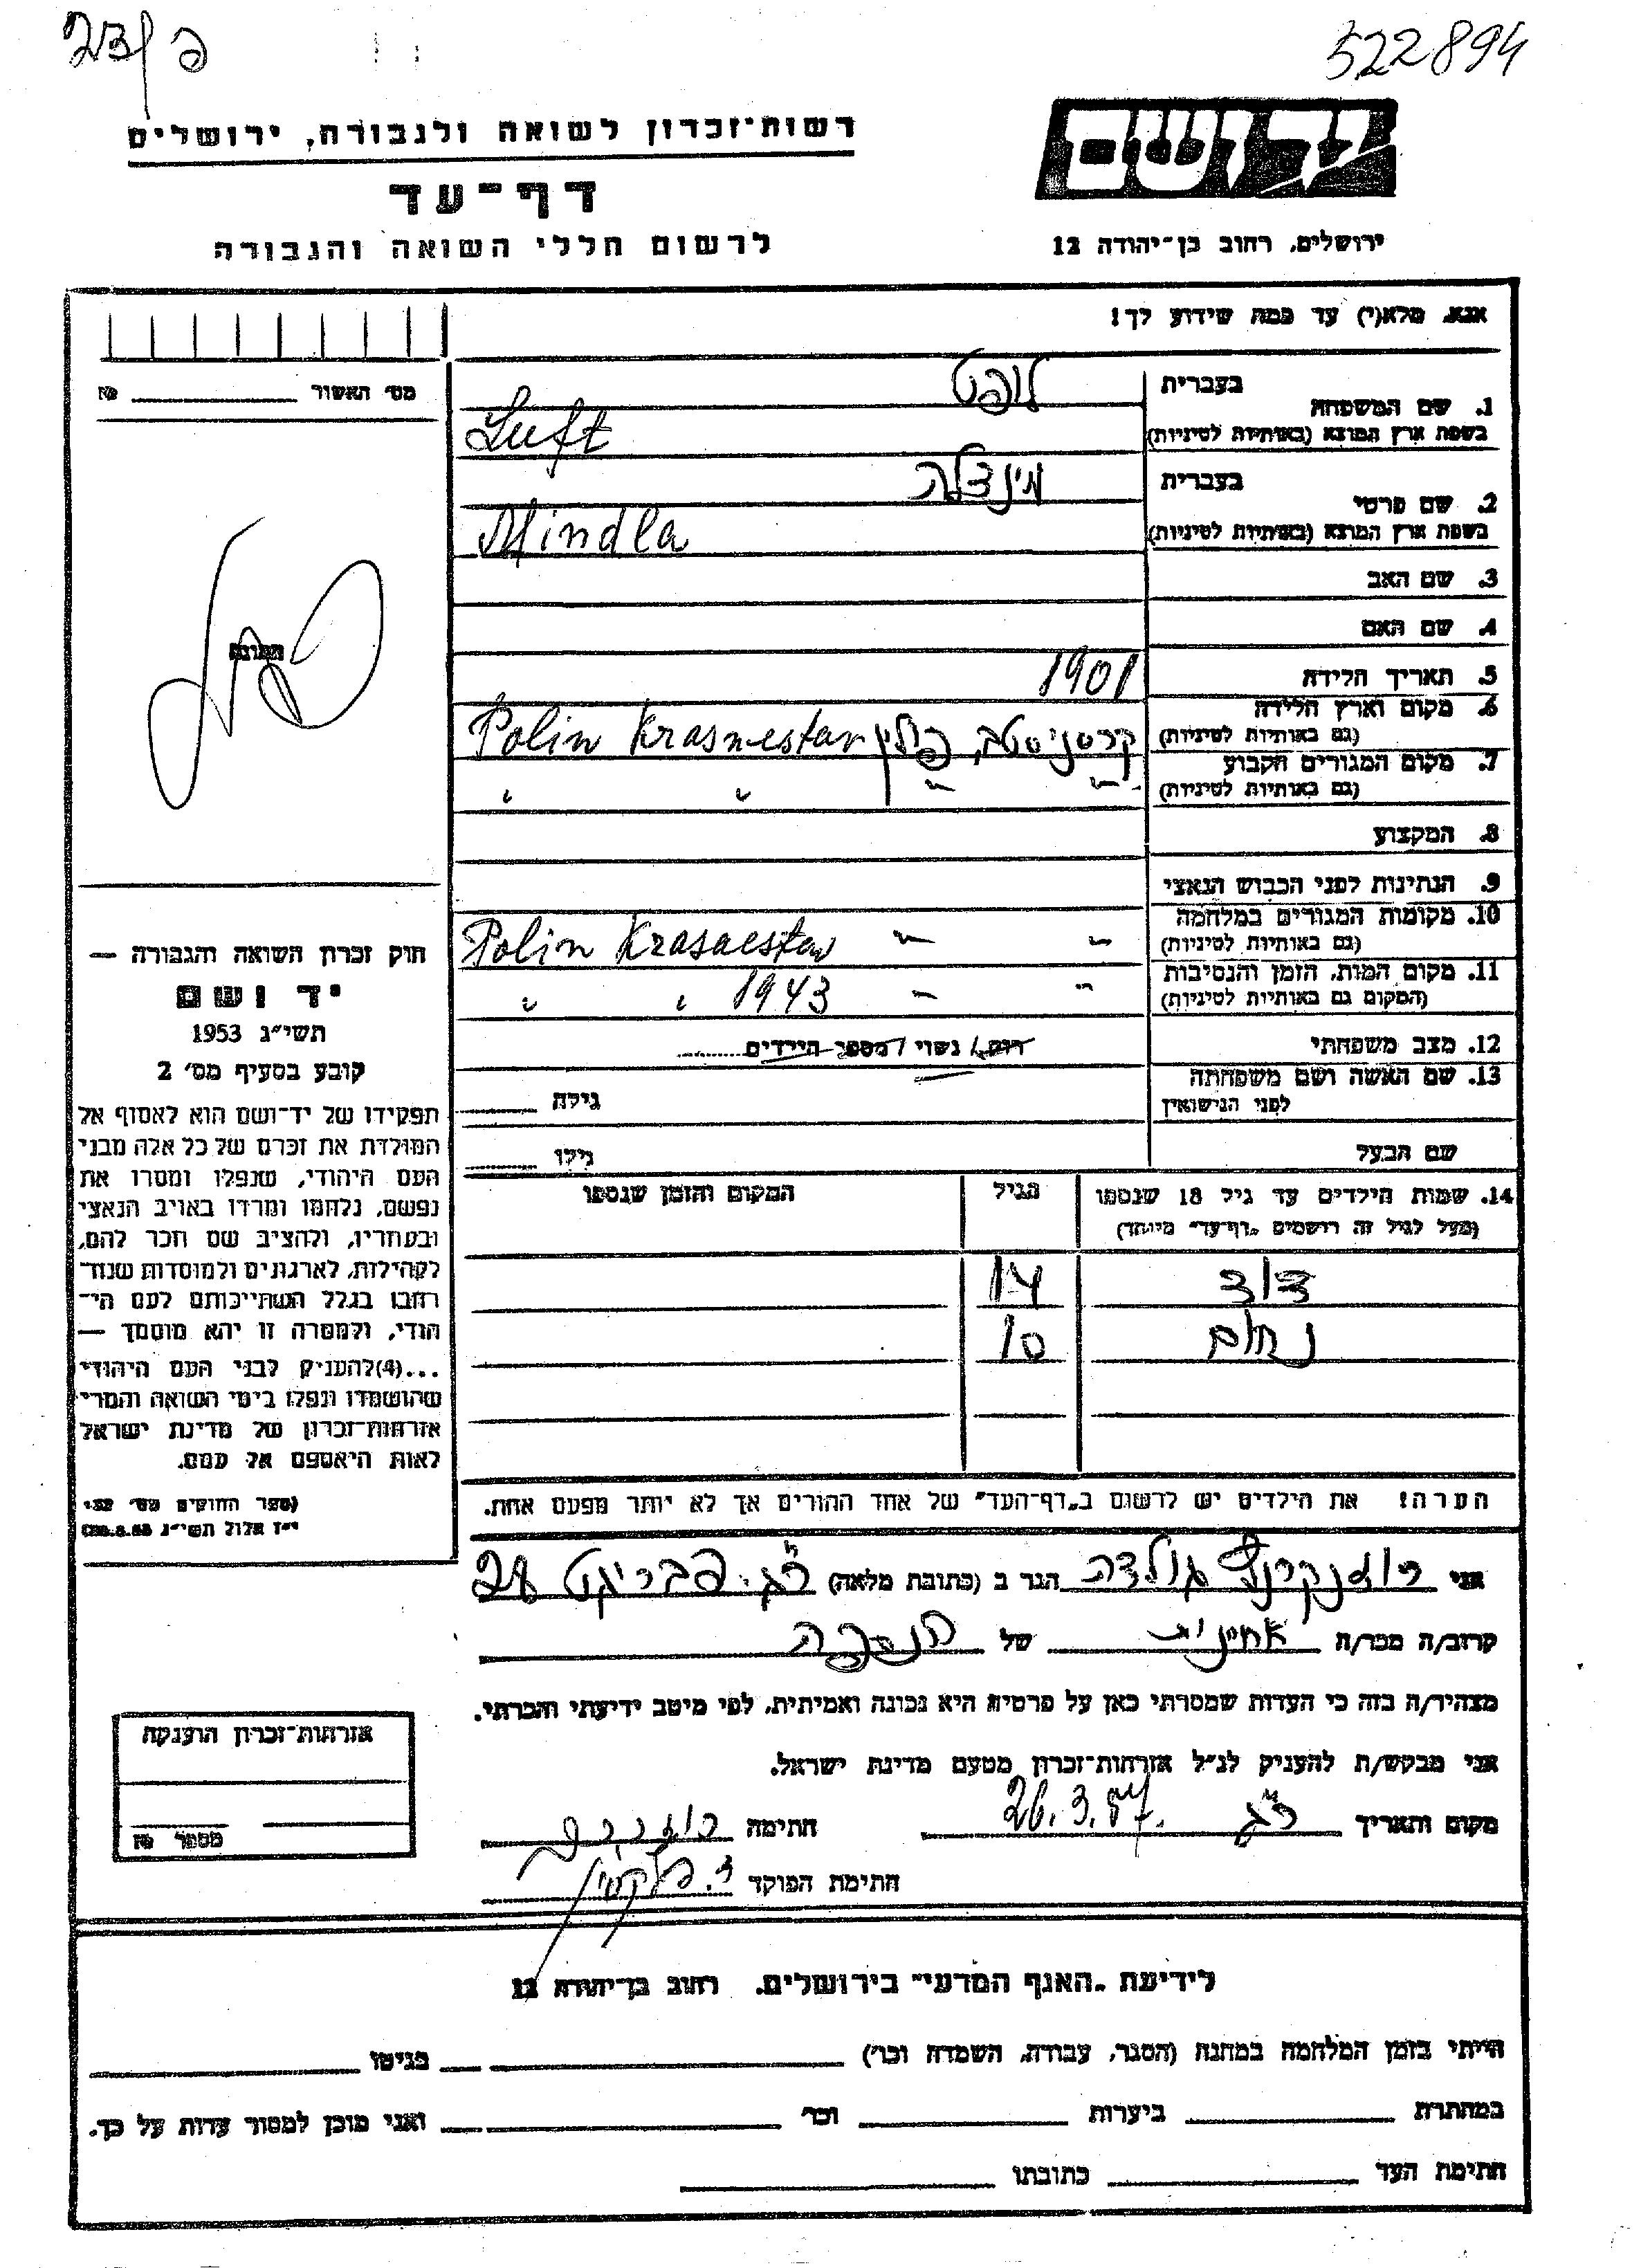 23/פ
522894
רשות־זכרון לשואה ולגבורה, ירושלים
דף־עד
לרשום חללי השואה והגבורה
יד ושם
ירושלים, רחוב בן־יהודה 12
אנא, מלא(י) עד כמה שידוע לך!
מס׳ האשור № ________
1. שם המשפחה
בעברית לופט
בשפת ארץ המוצא (באותיות לטיניות) Luft
2. שם פרטי
בעברית מינדלה
בשפת ארץ המוצא (באותיות לטיניות) Mindla
3. שם האב
4. שם האם
5. תאריך הלידה 1901
6. מקום וארץ הלידה
(גם באותיות לטיניות) קרסניסטב, פולין Polin Krasnestav
7. מקום המגורים הקבוע
(גם באותיות לטיניות) " " " "
8. המקצוע
9. הנתינות לפני הכבוש הנאצי
10. מקומות המגורים במלחמה
(גם באותיות לטיניות) " " Polin Krasnestav
11. מקום המות, הזמן והנסיבות
(המקום גם באותיות לטיניות) " " 1943 " "
12. מצב משפחתי רווק / נשוי / מספר הילדים........
13. שם האשה ושם משפחתה
לפני הנישואין גילה ........
שם הבעל גילו ........
14. שמות הילדים עד גיל 18 שנספו
(מעל לגיל זה רושמים „דף־עד" מיוחד)
הגיל
המקום והזמן שנספו
דוד 14
נחום 10
הערה! את הילדים יש לרשום ב„דף־העד" של אחד ההורים אך לא יותר מפעם אחת.
התמונה
חוק זכרון השואה והגבורה —
יד ושם
תשי״ג 1953
קובע בסעיף מס׳ 2
תפקידו של יד־ושם הוא לאסוף אל
המולדת את זכרם של כל אלה מבני
העם היהודי, שנפלו ומסרו את
נפשם, נלחמו ומרדו באויב הנאצי
ובעוזריו, ולהציב שם וזכר להם,
לקהילות, לארגונים ולמוסדות שנח־
רבו בגלל השתייכותם לעם הי־
הודי, ולמטרה זו יהא מוסמך —
...(4)להעניק לבני העם היהודי
שהושמדו ונפלו בימי השואה והמרי
אזרחות־זכרון של מדינת ישראל
לאות היאספם אל עמם.
(ספר החוקים מס׳ 132,
י״ז אלול תשי״ג 28.8.53)
אני גולדה הגר ב (כתובת מלאה) ר״ג. 28
קרוב/ה מכר/ה אחינית של הנספה
מצהיר/ה בזה כי העדות שמסרתי כאן על פרטיה היא נכונה ואמיתית, לפי מיטב ידיעתי והכרתי.
אני מבקש/ת להעניק לנ״ל אזרחות־זכרון מטעם מדינת ישראל.
מקום ותאריך ר״ג 26.3.57. חתימה
חתימת הפוקד
אזרחות־זכרון הוענקה
מספר №
לידיעת „האגף המדעי" בירושלים. רחוב בן־יהודה 12
הייתי בזמן המלחמה במחנה (הסגר, עבודה, השמדה וכר׳) ________ בגיטו ________
במחתרת ________ ביערות ________ וכר׳ ________ ואני מוכן למסור עדות על כך.
חתימת העד ________ כתובתו ________